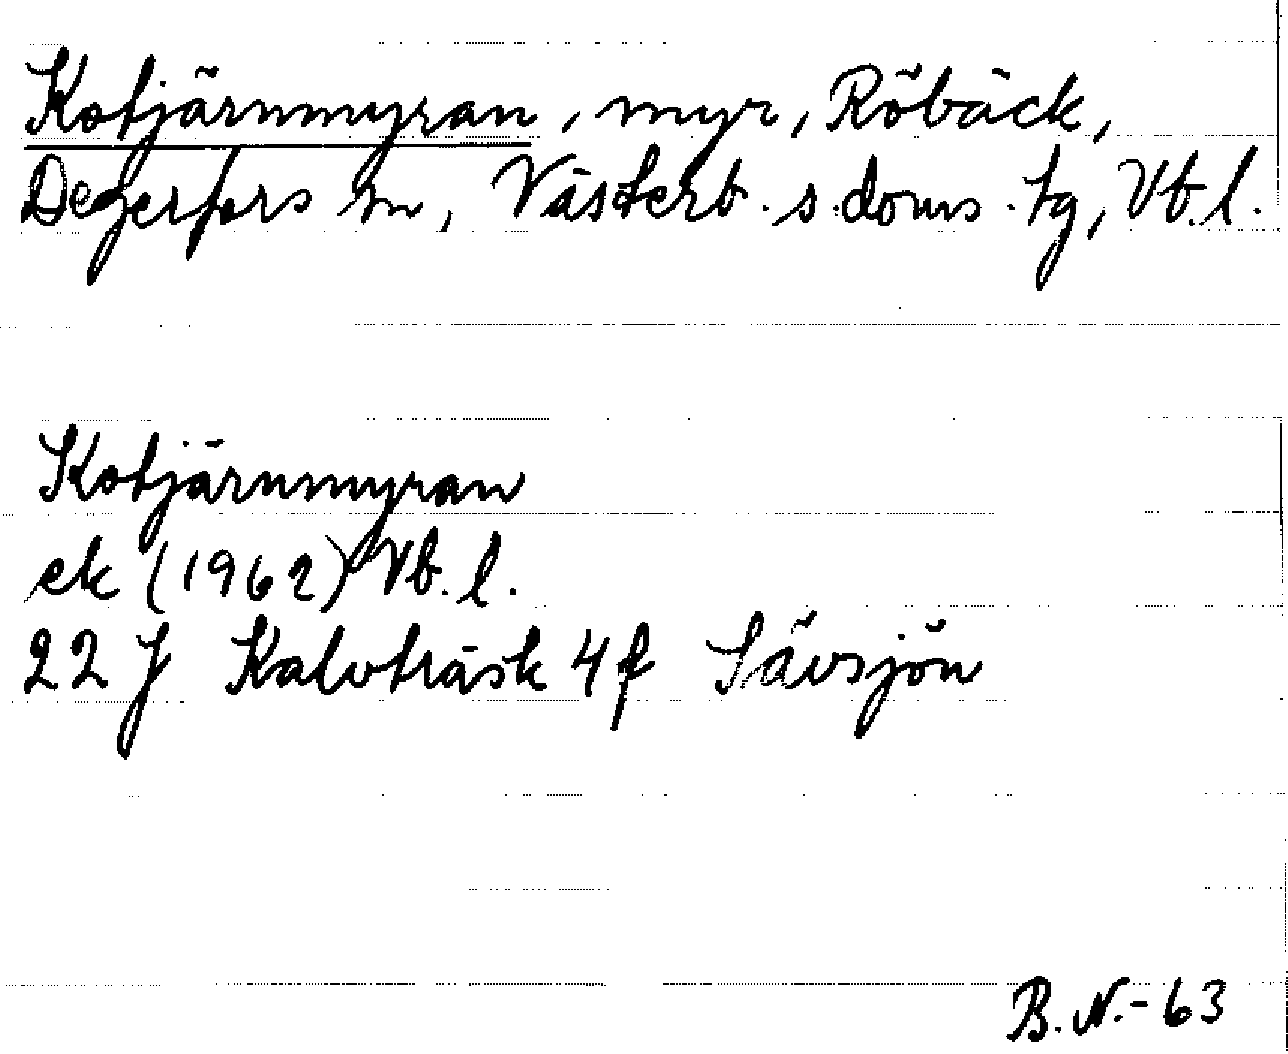 Kotjärnmyran, myr, Röbäck,
Degerfors sn, Västerb. s. doms. tg, Vb. l.
Kotjärnmyran
ek (1962) Vb. l.
22 J Kalvträsk 4 f Sävsjön
B. N. - 63